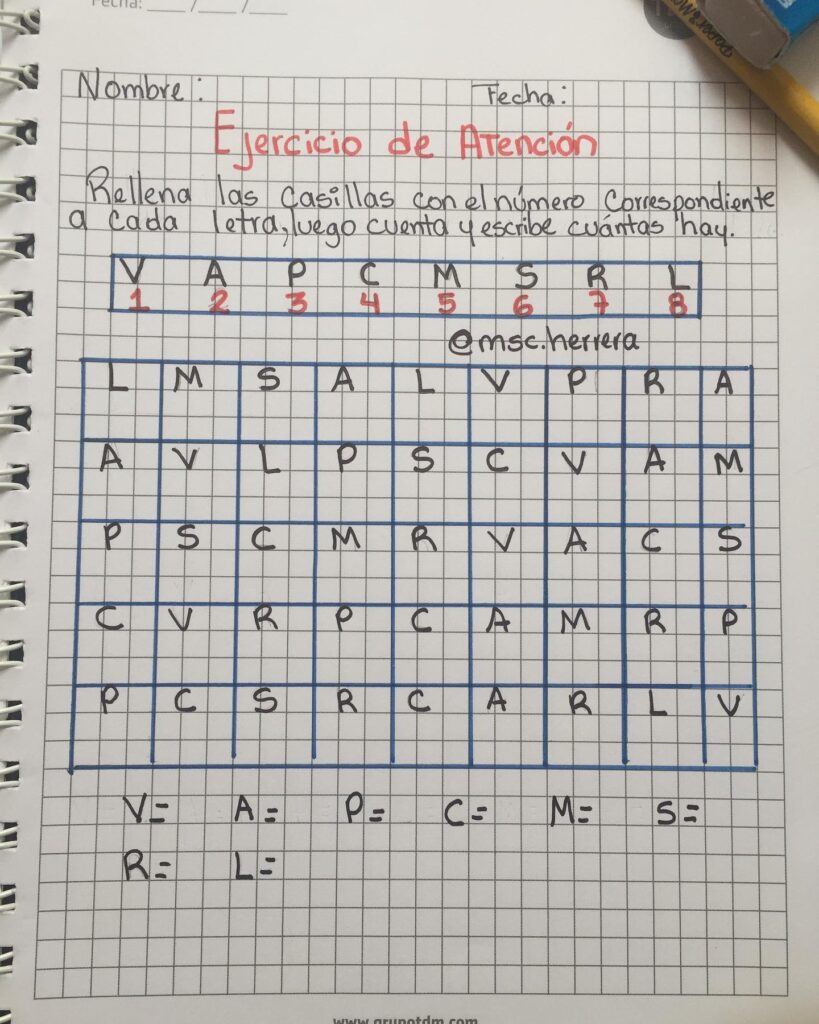 Fecha: ___/___/___
Nombre: Fecha:
Ejercicio de Atención
Rellena las casillas con el número correspondiente
a cada letra, luego cuenta y escribe cuántas hay.
V A P C M S R L
1 2 3 4 5 6 7 8
@msc.herrera
L M S A L V P R A
A V L P S C V A M
P S C M R V A C S
C V R P C A M R P
P C S R C A R L V
V= A= P= C= M= S=
R= L=
www.grupotdm.com